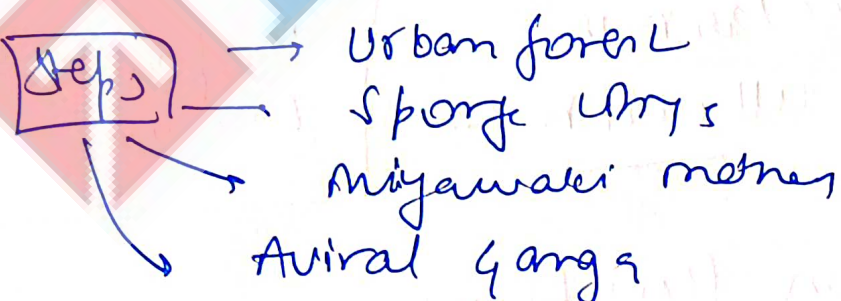 Steps
Urban forest
Sponge citys
Miyawaki method
Aviral Ganga